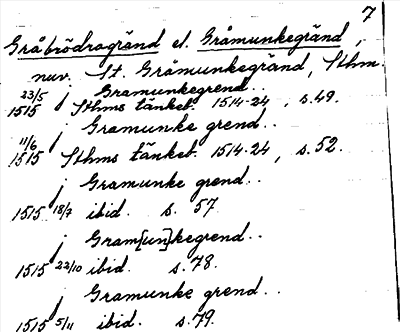 7
Gråbrödragränd el. Gråmunkegränd,
nuv. St. Gråmunkegränd, Sthm.
j Gramunkegrend..
23/5 1515 Sthms tänkeb. 1514-24, s. 49.
j Gramunke grend..
11/6 1515 Sthms tänkeb. 1514-24, s. 52.
j Gramunke grend..
1515 18/7 ibid. s. 57
j Gram[un]kegrend..
1515 22/10 ibid. s. 78.
j Gramunke grend..
1515 5/11 ibid. s. 79.